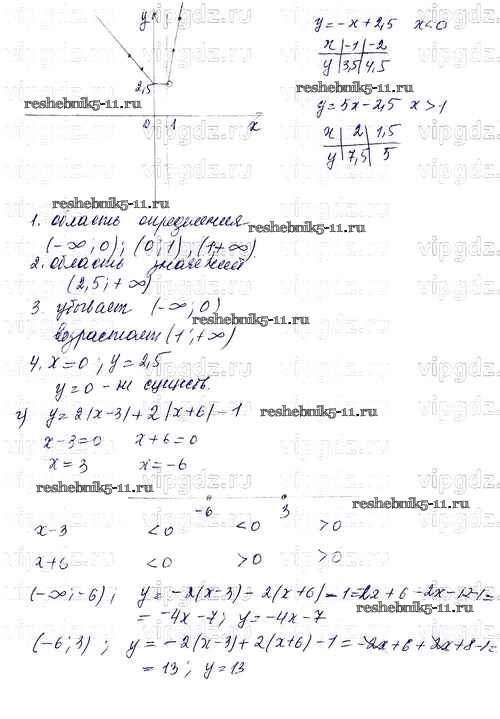 y
y=-x+2,5 x<0
x -1 -2
y 3,5 4,5
y=5x-2,5 x>1
x 2 1,5
y 7,5 5
2,5
reshebnik5-11.ru
0 1 x
reshebnik5-11.ru
1. область определения
(-∞;0); (0;1), (1+∞).
reshebnik5-11.ru
2. область значений
(2,5;+∞)
3. убывает (-∞;0)
возрастает (1;+∞)
reshebnik5-11.ru
4. x=0; y=2,5
y=0 - не существ.
г) y=2|x-3|+2|x+6|-1
reshebnik5-11.ru
x-3=0 x+6=0
x=3 x=-6
reshebnik5-11.ru
-6 3
reshebnik5-11.ru
x-3 <0 <0 >0
x+6 <0 >0 >0
(-∞;-6); y=-2(x-3)-2(x+6)-1=-2x+6-2x-12-1=
=-4x-7; y=-4x-7
reshebnik5-11.ru
(-6;3); y=-2(x-3)+2(x+6)-1=-2x+6+2x+8-1=
=13; y=13
vipgdz.ru